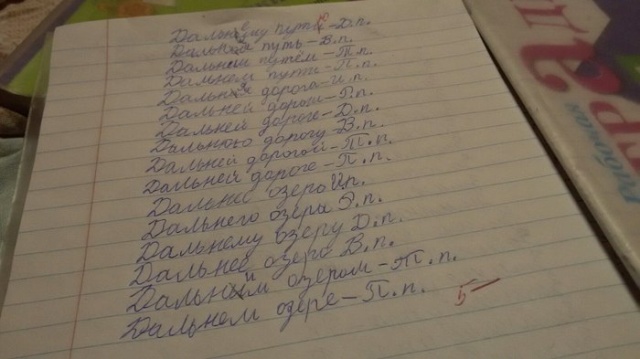 Дальнему пути - Д.п.
Дальний путь - В.п.
Дальним путём - Т.п.
Дальнем пути - П.п.
Дальняя дорога - И.п.
Дальней дороги - Р.п.
Дальней дороге - Д.п.
Дальнюю дорогу - В.п.
Дальней дорогой - Т.п.
Дальней дороге - П.п.
Дальнее озеро И.п.
Дальнего озера Р.п.
Дальнему озеру Д.п.
Дальнее озеро В.п.
Дальним озером - Т.п.
Дальнем озере - П.п.
5-